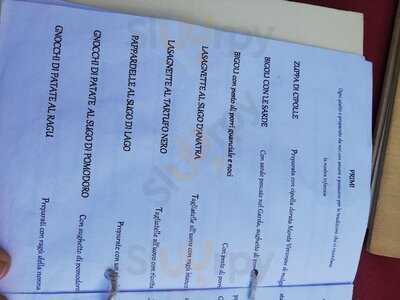 Ogni piatto è preparato da noi con amore e passione per la tradizione che ci
la nostra
PRIMI
ZUPPA DI CIPOLLE
Preparata con cipolla dorata
BIGOLI CON LE SARDE
Con sarde pescate nel Garda,
BIGOLI con pesto di porri guanciale e noci
Con pesto di porri
LASAGNETTE AL SUGO D'ANATRA
Tagliatelle all'uovo con ragù
LASAGNETTE AL TARTUFO NERO
Tagliatelle all'uovo con
PAPPARDELLE AL SUGO DI LAGO
Preparate con un
GNOCCHI DI PATATE AL SUGO DI POMODORO
Con sughetto di pomodoro
GNOCCHI DI PATATE AL RAGU
Preparati con ragù della nonna